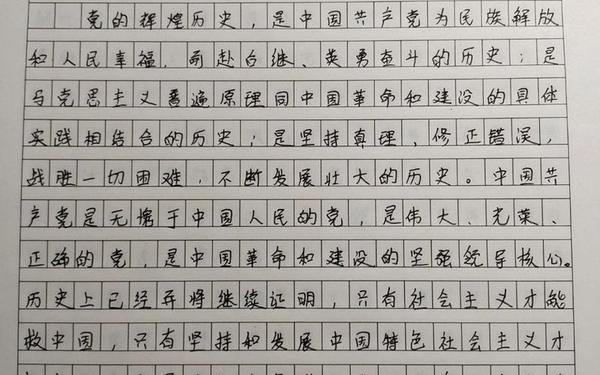 党的辉煌历史，是中国共产党为民族解放
和人民幸福，前赴后继、英勇奋斗的历史；是
马克思主义普遍原理同中国革命和建设的具体
实践相结合的历史；是坚持真理、修正错误，
战胜一切困难，不断发展壮大的历史。中国共
产党是无愧于中国人民的党，是伟大、光荣、
正确的党，是中国革命和建设的坚强领导核心。
历史上已经并将继续证明，只有社会主义才能
救中国，只有坚持和发展中国特色社会主义才